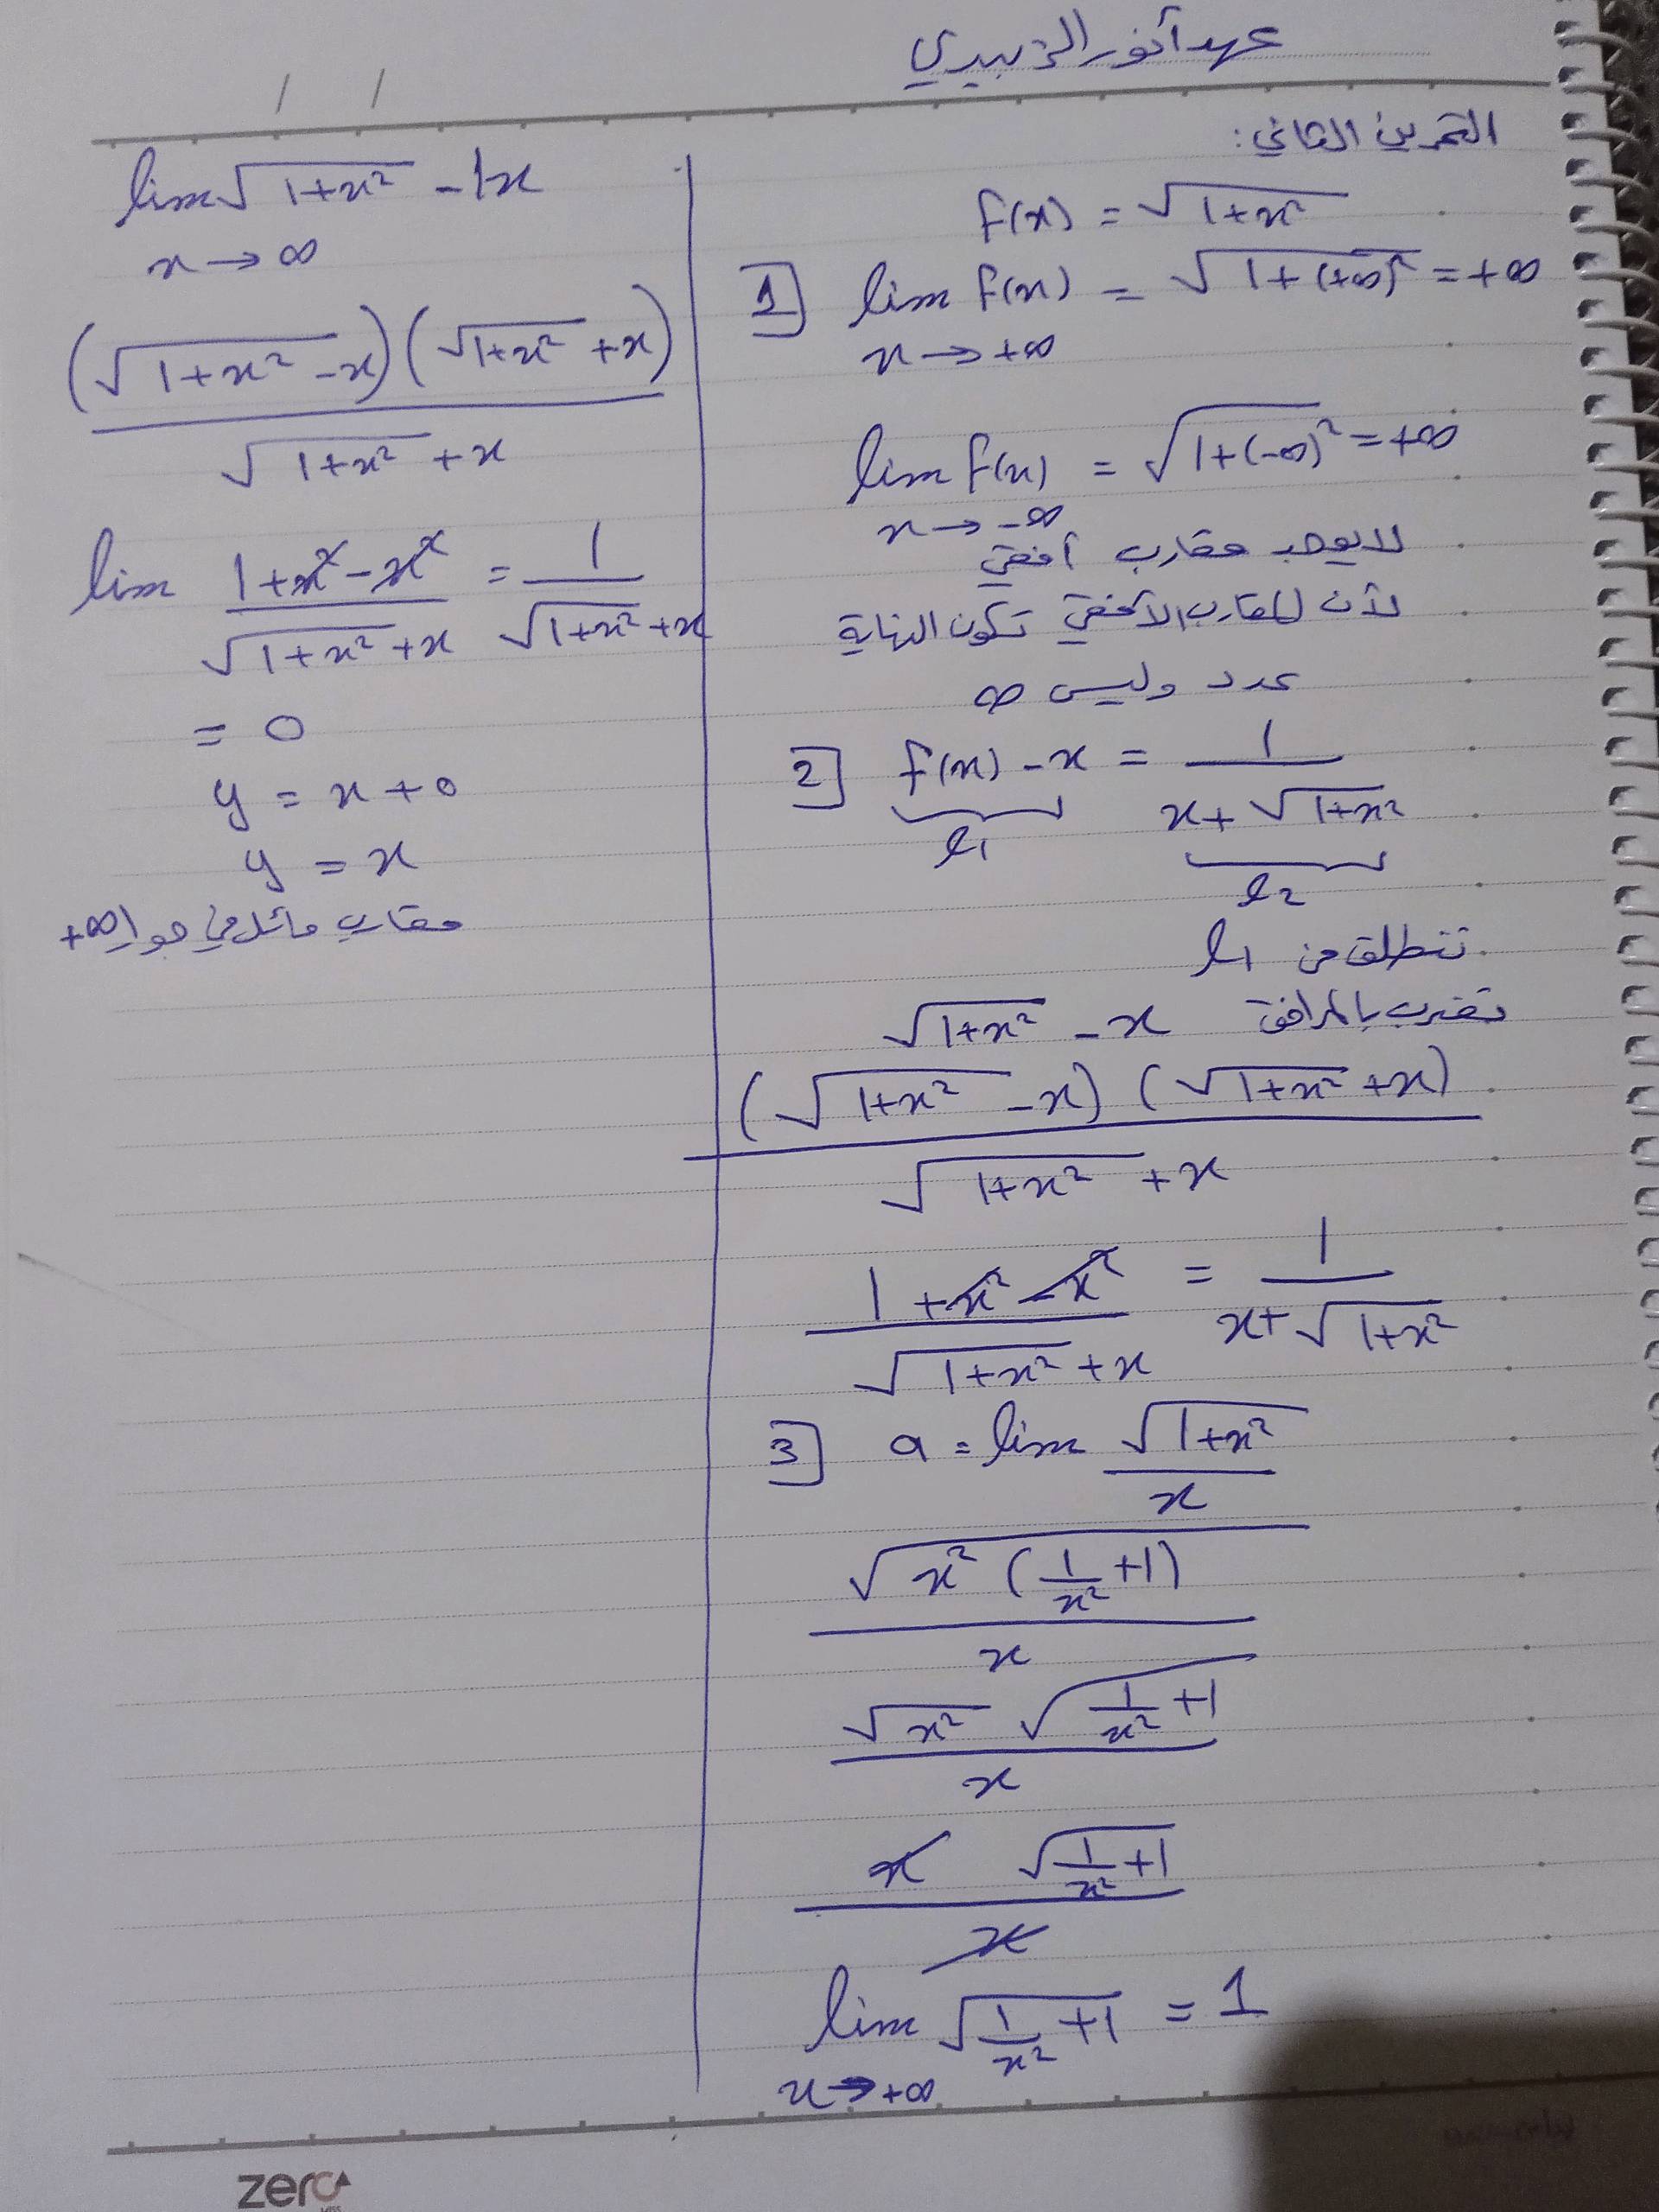 عهد أنور الزبيدي
/ /
التمرين الثاني:
f(x) = √(1+x²)
1] lim f(x) = √(1+(+∞)²) = +∞
x → +∞
lim f(x) = √(1+(-∞)²) = +∞
x → -∞
لا يوجد مقارب أفقي
لأن المقارب الأفقي تكون النهاية
عدد وليس ∞
2] f(x) - x = 1/(x+√(1+x²))
l1 l2
ننطلق من l1
√(1+x²) - x نضرب بالمرافق
(√(1+x²) - x) (√(1+x²) + x)
√(1+x²) + x
(1+x²-x²)/(√(1+x²)+x) = 1/(x+√(1+x²))
3] a = lim √(1+x²)/x
√(x²(1/x²+1))
x
√x² √(1/x²+1)
x
x √(1/x²+1)
x
lim √(1/x²+1) = 1
x → +∞
lim √(1+x²) - 1x
x → ∞
(√(1+x²) - x)(√(1+x²) + x)
√(1+x²) + x
lim (1+x²-x²)/(√(1+x²)+x) = 1/(√(1+x²)+x)
= 0
y = x + 0
y = x
مقارب مائل في جوار +∞
zero